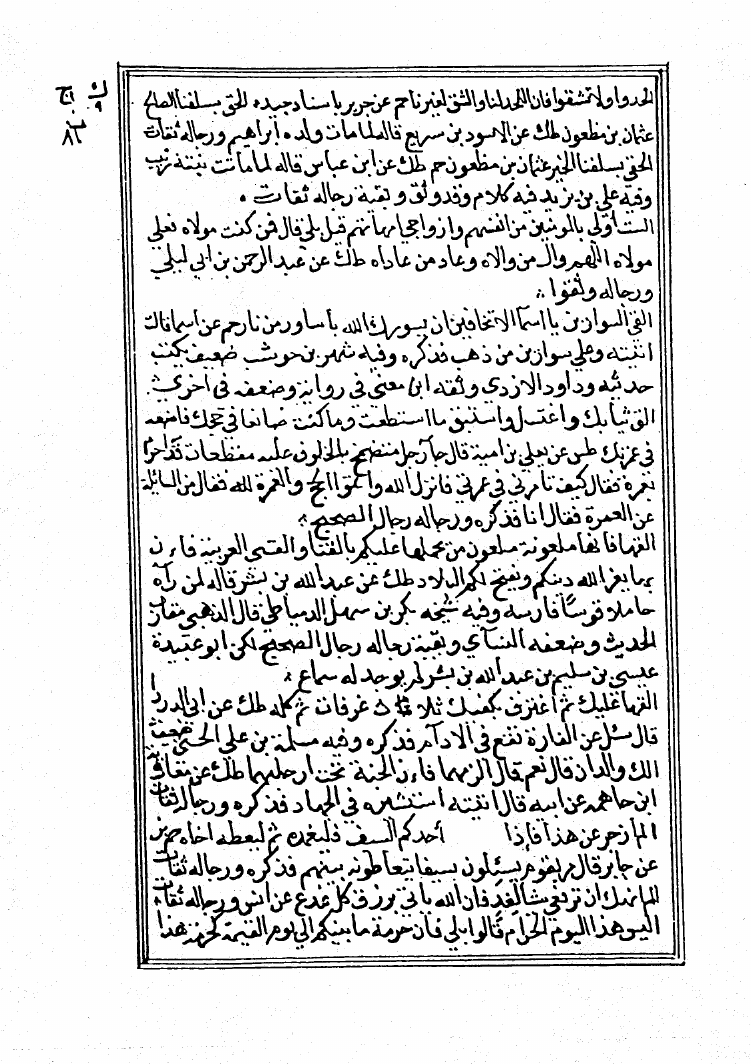 الحدوا ولا تشقوا فان اللحد لنا والشق لغيرنا حم عن جرير باسناد جيده الحق بسلفنا الصالح
عثمان بن مظعون طك عن الاسود بن سريع قاله لما مات ولده ابراهيم ورجاله ثقات
الحقي بسلفنا الخير عثمان بن مظعون حم طك عن ابن عباس قاله لما ماتت بنته زينب
وفيه علي بن يزيد فيه كلام وقد وثق وبقية رجاله ثقات
الست اولى بالمومنين من انفسهم وازواجي امهاتهم قيل بلى قال فمن كنت مولاه فعلي
مولاه اللهم وال من والاه وعاد من عاداه طك عن عبد الرحمن بن ابي ليلى
ورجاله وثقوا
القي السوارين يا اسما الا تخافين ان يسورك الله باساور من نار حم عن اسما قالت
اتيته وعلي سوارين من ذهب فذكره وفيه شهر بن حوشب ضعيف يكتب
حديثه وداود الازدي وثقه ابن معين في رواية وضعفه في اخرى
الق ثيابك واغتسل واستنق ما استطعت وما كنت صانعا في حجك فاصنعه
في عمرتك طس عن يعلي بن امية قال جا رجل متضمخ بالخلوق عليه مقطعات قد احرم
بعمرة فقال كيف تامرني في عمرتي فانزل الله واتموا الحج والعمرة لله فقال من السائل
عن العمرة فقال انا فذكره ورجاله رجال الصحيح
القها فانها ملعونة ملعون من يحملها عليكم بالقنا والقسي العربية فاءن
بها يعز الله دينكم ويفتح لكم البلاد طك عن عبد الله بن بشر قاله لمن رآه
حاملا قوسا فارسه وفيه شيخه بكر بن سهل الدمياطي قال الذهبي مقارب
الحديث وضعفه النساي وبقية رجاله رجال الصحيح لكن ابو عبيدة
عيسى بن سليم بن عبد الله بن بشر لم يوجد له سماع
القها عليك ثم اغترف بكفيك ثلاث غرفات ثم كله طك عن ابي الدردا
قال سئل عن الفارة تقع في الادام فذكره وفيه مسلمة بن علي الخشني ضعيف
الك والدان قال نعم قال الزمهما فاءن الجنة تحت ارجلهما طك عن معاوية
ابن جاهمه عن ابيه قال اتيته استشيره في الجهاد فذكره ورجاله ثقات
الم ازجر عن هذا فإذا أحدكم السيف فليغمده ثم ليعطه اخاه حم بز
عن جابر قال مر بقوم يسئلون سيفا يتعاطونه بينهم فذكره ورجاله ثقات
الم انهك ان ترفعي شيا لغد فان الله ياتي برزق كل غد ع عن انس ورجاله ثقات
اليس هذا اليوم الحرام قالوا بلى فان حرمة ما بينكم الى يوم القيمة كحرمة هذا